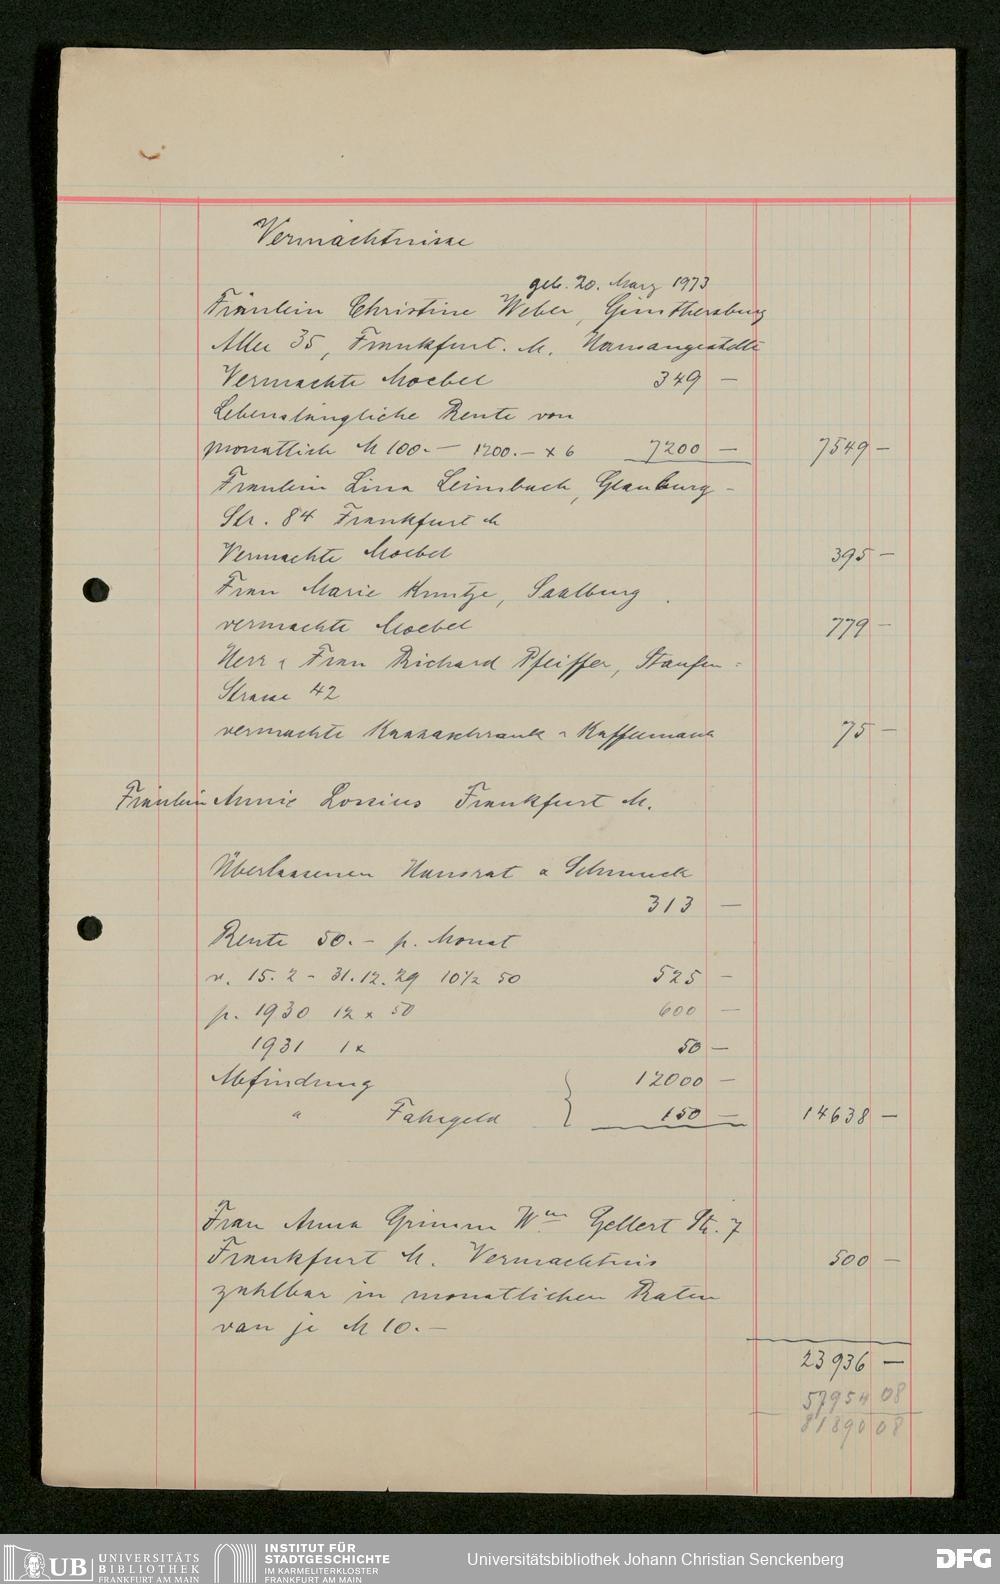 Vermächtnisse
geb. 20. März 1973
Fräulein Christine Weber, Günthersburg
Allee 35, Frankfurt. M. Hausangestellte
Vermachte Moebel 349 —
Lebenslängliche Rente von
monatlich M 100.— 1200.— x 6 7200 — 7549 —
Fräulein Lina Leimbach, Glauburg-
Str. 84 Frankfurt M
Vermachte Moebel 395 —
Frau Marie Kuntze, Saalburg
vermachte Moebel 779 —
Herr & Frau Richard Pfeiffer, Staufen=
Strasse 42
vermachte Kassaschrank & 75 —
Fräulein Annie Lossius Frankfurt M.
Überlassenen Hausrat & Schmuck
313 —
Rente 50.— p. Monat
v. 15. 2 - 31. 12. 29 10½ 50 525 —
p. 1930 12 x 50 600 —
1931 1 x 50 —
Abfindung 12000 —
" Fahrgeld 150 — 14638 —
Frau Anna Grimm Wwe Gellert Str. 7
Frankfurt M. Vermächtnis 500 —
zahlbar in monatlichen Raten
von je M 10.—
23936 —
57954 08
81890 08
UB UNIVERSITÄTS
BIBLIOTHEK
FRANKFURT AM MAIN
INSTITUT FÜR
STADTGESCHICHTE
IM KARMELITERKLOSTER
FRANKFURT AM MAIN
Universitätsbibliothek Johann Christian Senckenberg
DFG